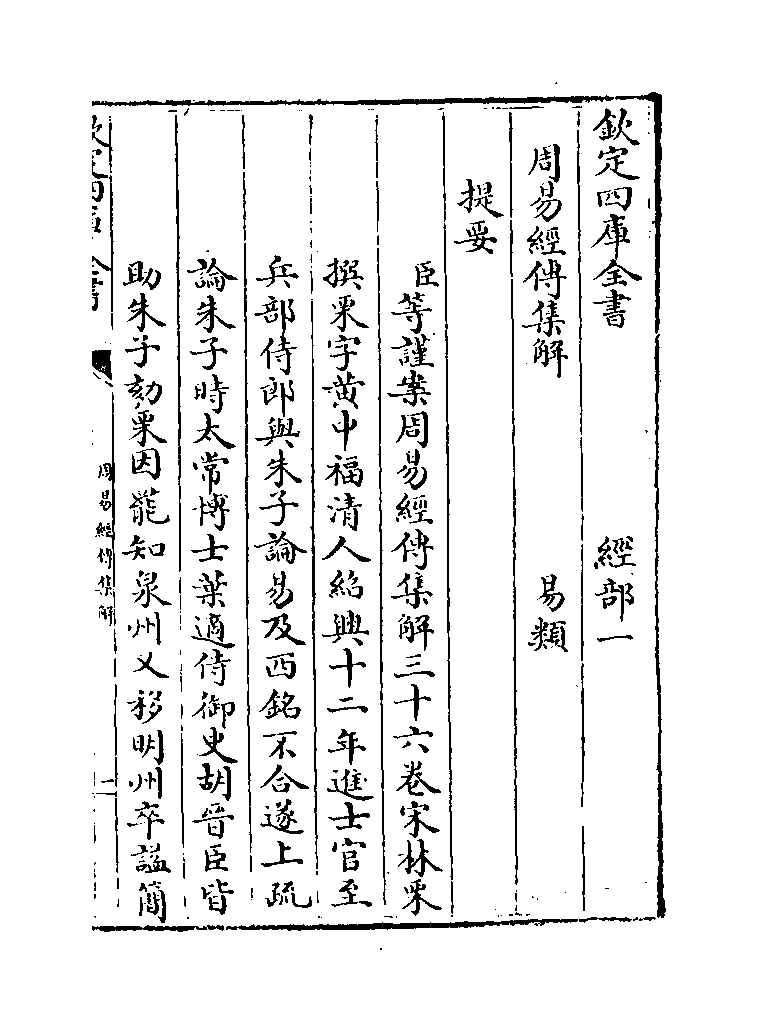 欽定四庫全書　經部一
周易經傳集解　易類
提要
臣等謹案周易經傳集解三十六卷宋林栗
撰栗字黄中福清人紹興十二年進士官至
兵部侍郎與朱子論易及西銘不合遂上疏
論朱子時太常博士葉適侍御史胡晉臣皆
助朱子劾栗因罷知泉州乂移明州卒諡簡
欽定四庫全書
周易經傳集解